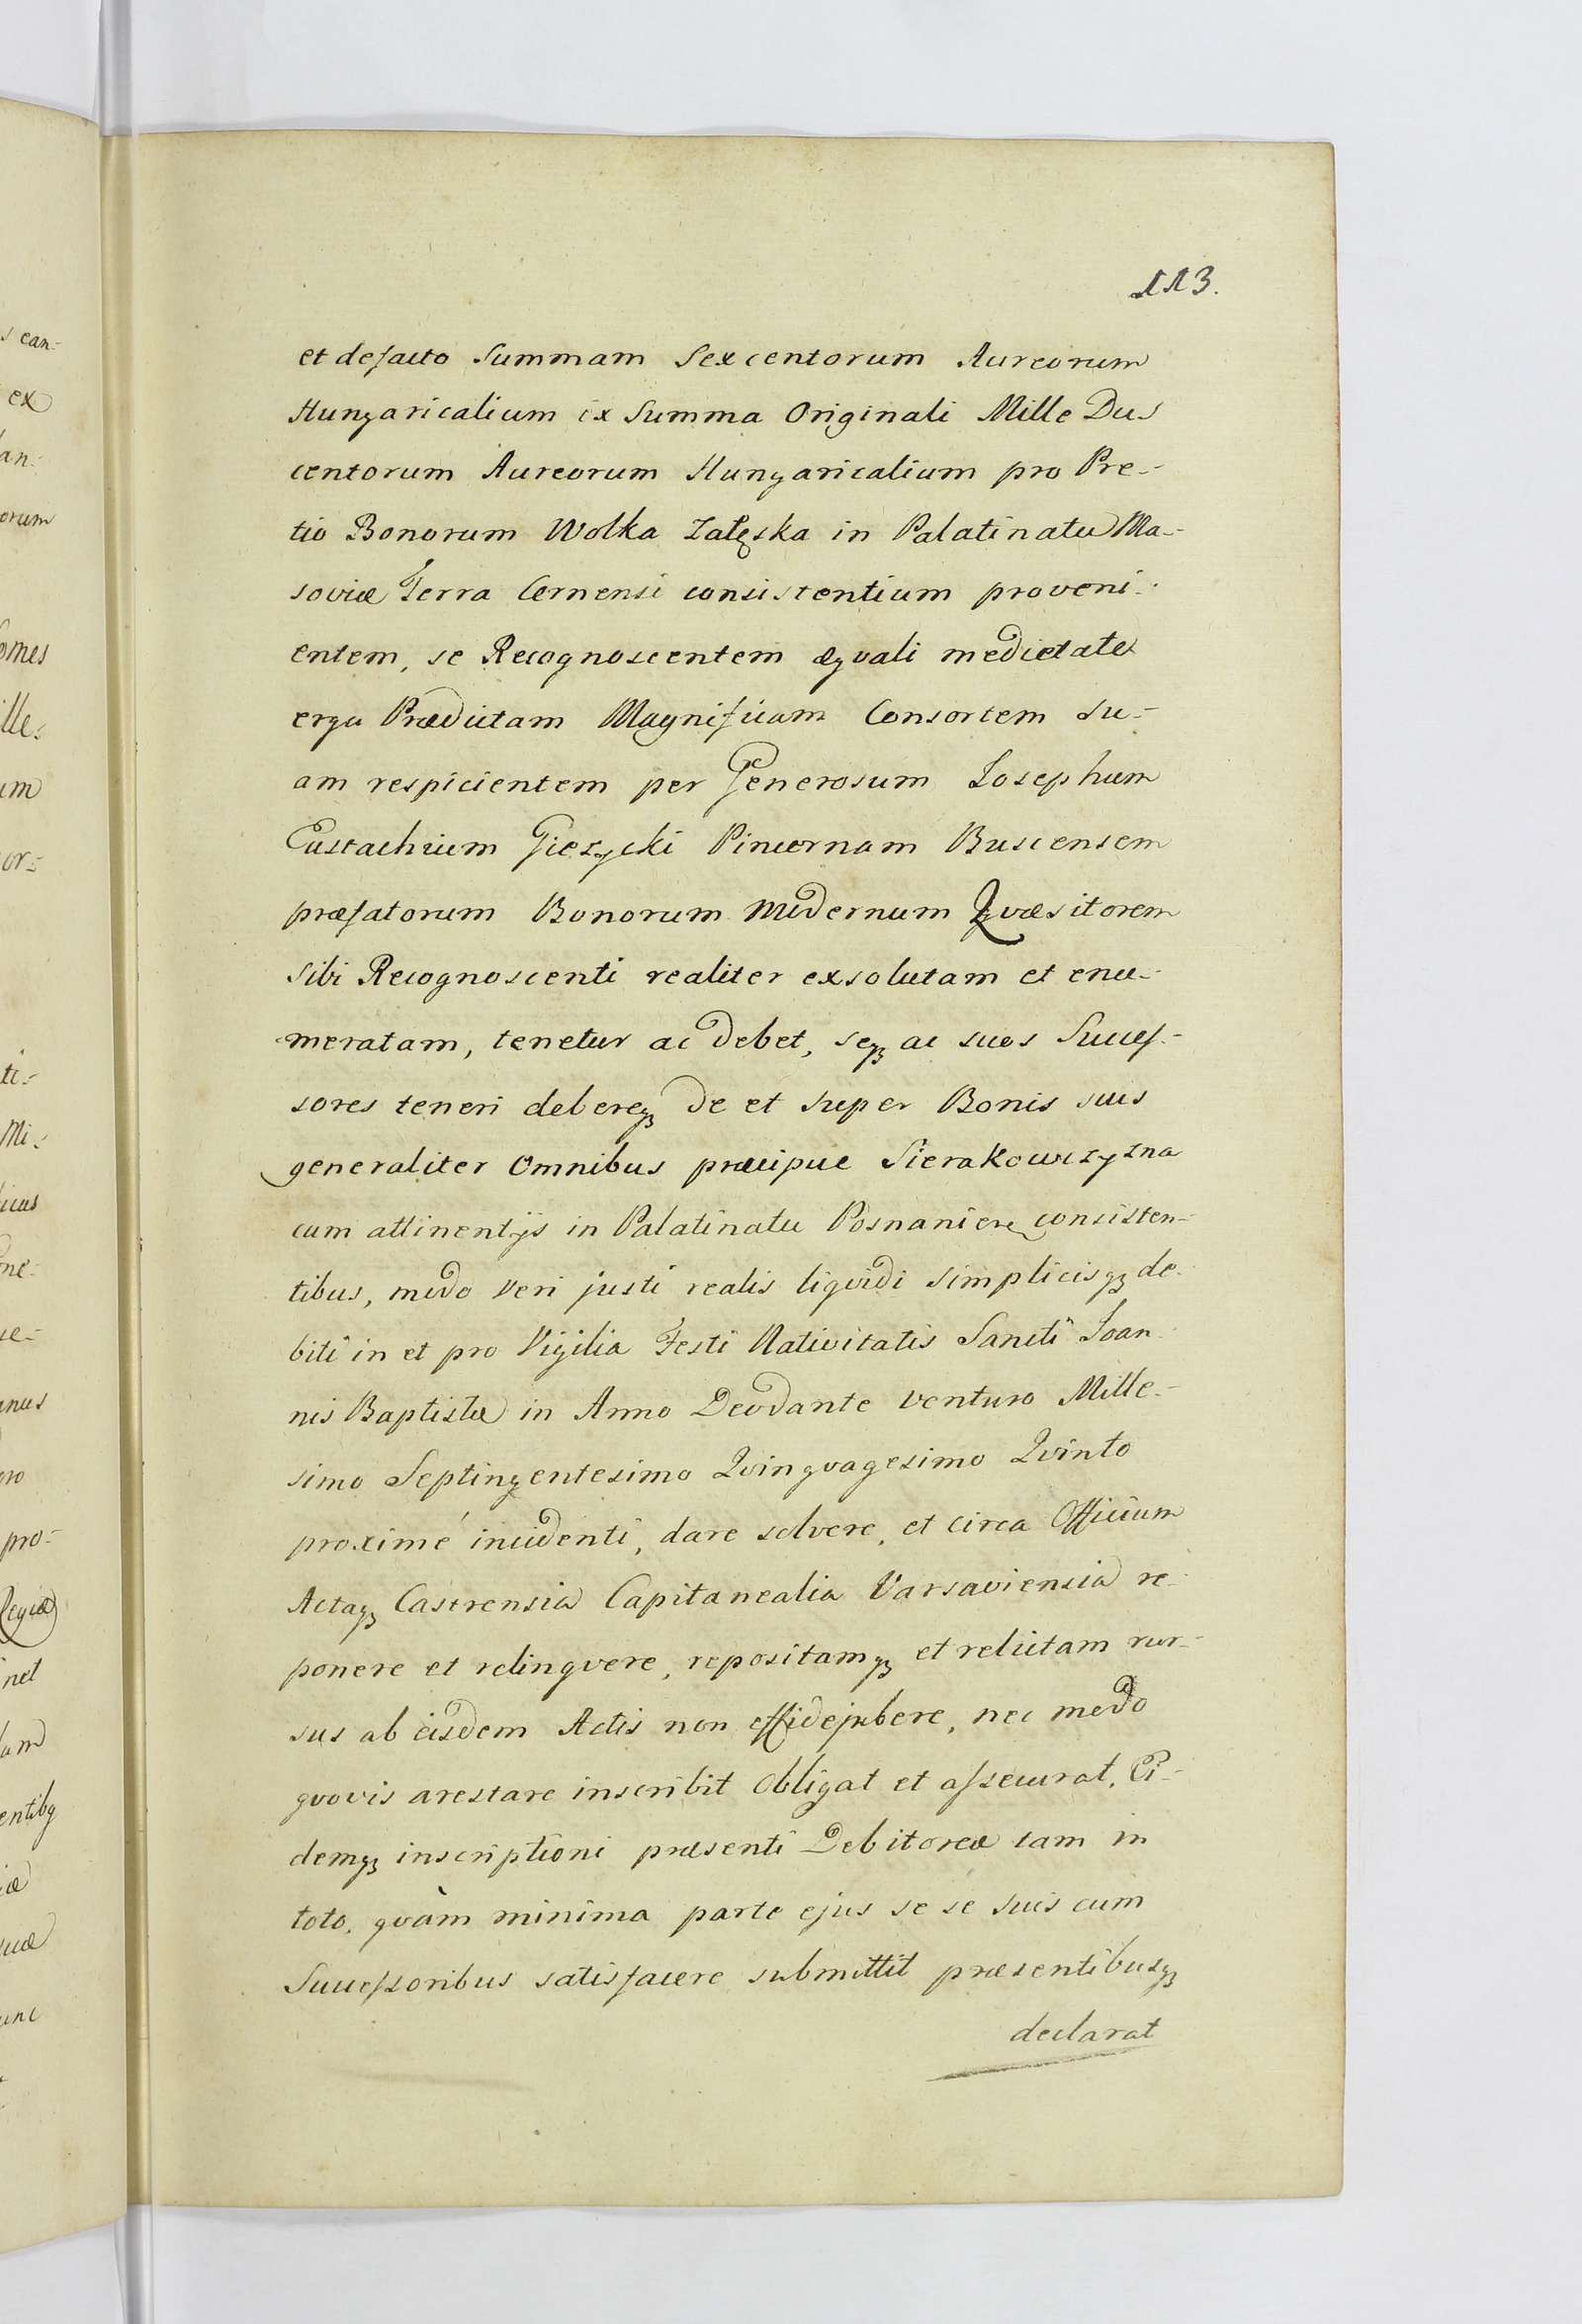 113.
et defacto Summam Sexcentorum Aureorum
Hungaricalium ex Summa Originali Mille Dus
centorum Aureorum Hungaricalium pro Pre-
tio Bonorum Wolka Załęska in Palatinatu Ma-
soviæ Terra Cernensi consistentium proveni-
entem, se Recognoscentem æqvali medietate
erga Prædictam Magnificam Consortem su-
am respicientem per Generosum Josephum
Eustachium Giezycki Pincernam Buscensem
præfatorum Bonorum modernum Qvæsitorem
sibi Recognoscenti realiter exsolutam et enu-
meratam, tenetur ac debet, seqꝫ ac suos Succes-
sores teneri debereqꝫ de et super Bonis suis
generaliter Omnibus præcipue Sierakowszyzna
cum attinentÿs in Palatinatu Posnanien consisten-
tibus, modo veri justi realis liqvidi simplicisqꝫ de-
biti in et pro Vigilia Festi Nativitatis Sancti Joan
nis Baptistæ in Anno Deodante venturo Mille-
simo Septingentesimo Qvinqvagesimo Qvinto
proximé incidenti, dare solvere, et circa Officium
Actaqꝫ Castrensia Capitanealia Varsaviensia re-
ponere et relinqvere, repositamqꝫ et relictam rur-
sus ab eisdem Actis non effidejubere, nec modo
qvovis arestare inscribit obligat et assecurat, Ei-
demqꝫ inscriptioni præsenti Debitoreæ tam in
toto, qvàm minima parte ejus se se suis cum
Successoribus satisfacere submittit præsentibusqꝫ
declarat
s can-
ex
an-
orum
omes
ille-
um
or-
ti-
Mi-
icus
ne-
ue-
anus
pro
pro-
Regiæ
nel
lam
entibq
iæ
suæ
unc